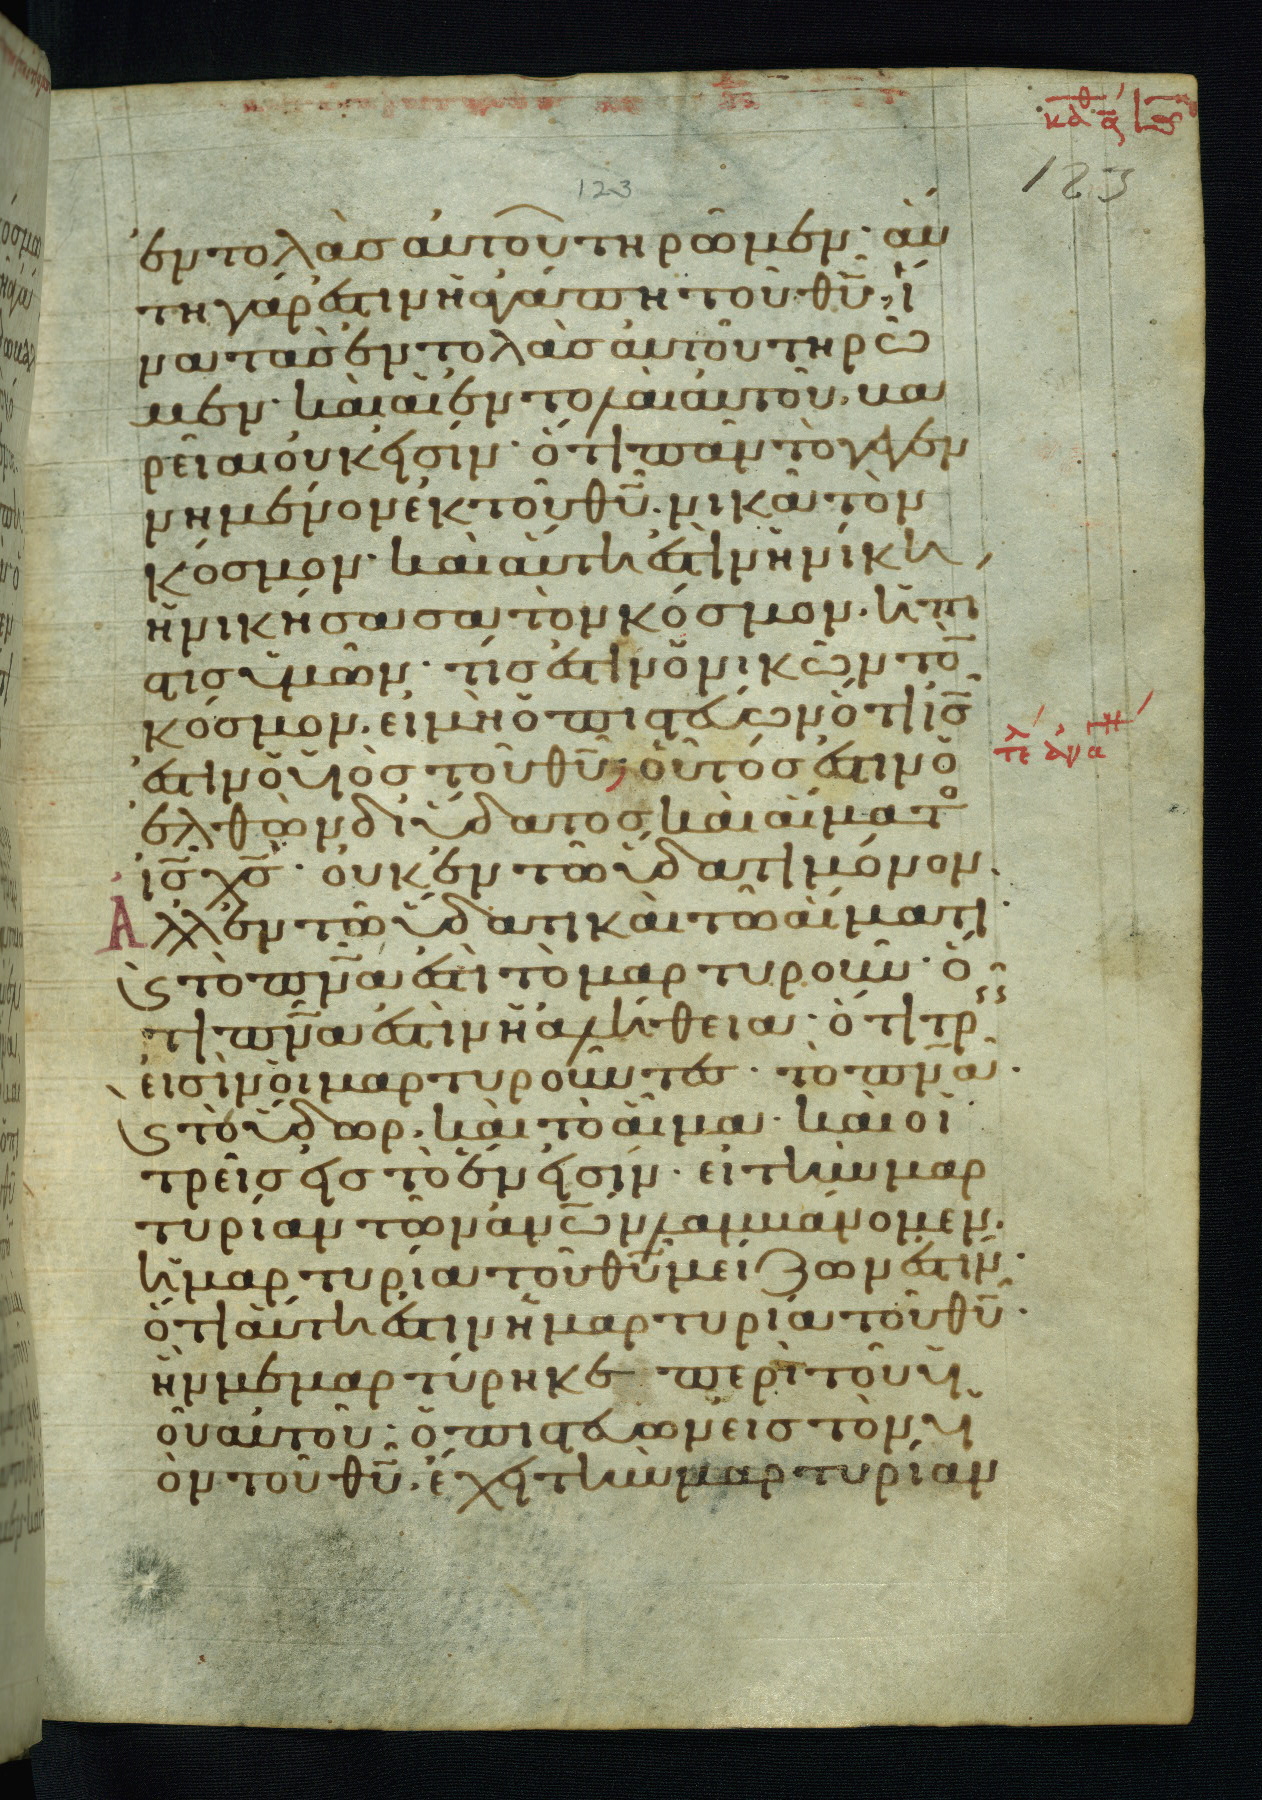 123
123
ἐντολὰσ αὐτοῦ τηρῶμεν· αὕ
τη γάρ ἐστιν ἡ ἀγάπη τοῦ θῦ, ἵ
να τὰσ ἐντολὰσ αὐτοῦ τηρῶ
μεν· καὶ αἱ ἐντολαὶ αὐτοῦ. βα
ρεῖαι οὐκ εἰσίν· ὅτι πᾶν τὸ γεγεν
νημένον ἐκ τοῦ θῦ. νικᾶ τὸν
κόσμον· καὶ αὕτη ἐστὶν ἡ νίκη,
ἡ νικήσασα τὸν κόσμον. ἡ πί
στισ ὑμῶν· τίσ ἐστιν ὁ νικῶν τὸ̄
κόσμον. εἰ μὴ ὁ πιστεύων ὅτι ισ̄
ἐστιν ὁ υἱὸσ τοῦ θῦ; οὗτόσ ἐστιν ὁ
ἐλθὼν δι ὕδατοσ καὶ αἵματο
ισ̄ χσ̄· οὐκ ἐν τῶ ὕδατι μόνον.
Ἀλλ ἐν τῶ ὕδατι καὶ τῶ αἵματι·
ϛ τὸ πν̄α ἐστὶ τὸ μαρτυροῦν· ὅ
τι πν̄α ἐστιν ἡ ἀλήθεια· ὅτι τρ
εισὶν οἱ μαρτυροῦντεσ· τὸ πν̄α·
ϛ τὸ ὕδωρ. καὶ τὸ αἷμα· καὶ οἱ
τρεῖσ εἰσ τὸ ἕν εἰσίν· εἰ τὴν μαρ
τυρίαν τῶν ἀνω̄ν λαμβάνομεν.
ἡ μαρτυρία τοῦ θῦ μείζων ἐστίν·
ὅτι αὕτη ἐστιν ἡ μαρτυρία τοῦ θῦ·
ἣν μεμαρτύρηκε περὶ τοῦ υἱ
οῦ αὐτοῦ· ὁ πιστεύων εἰσ τὸν υἱ
ὸν τοῦ θῦ. ἔχει τὴν μαρτυρίαν